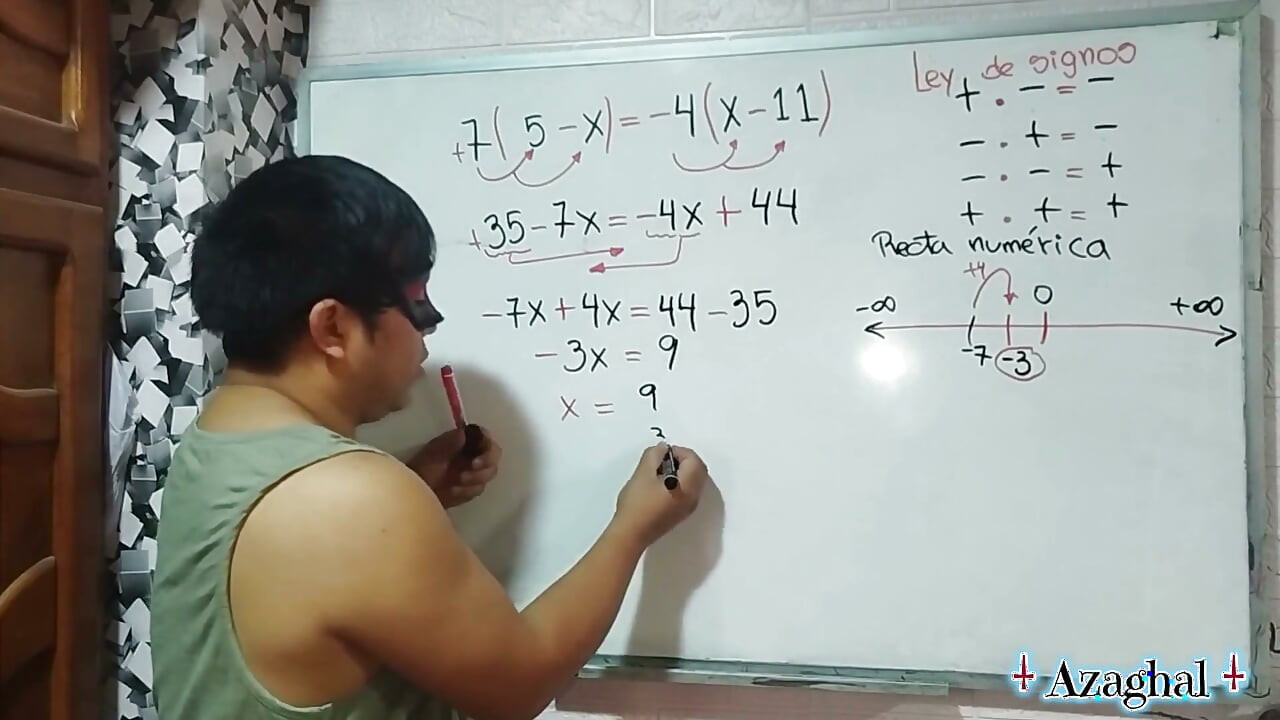 +7(5-x)=-4(x-11)
+35-7x=-4x+44
-7x+4x=44-35
-3x=9
x=9
3
Ley de signos
+.-=-
-.+=-
-.-=+
+.+=+
Recta numérica
+4
-∞ 0 +∞
-7 -3
Azaghal